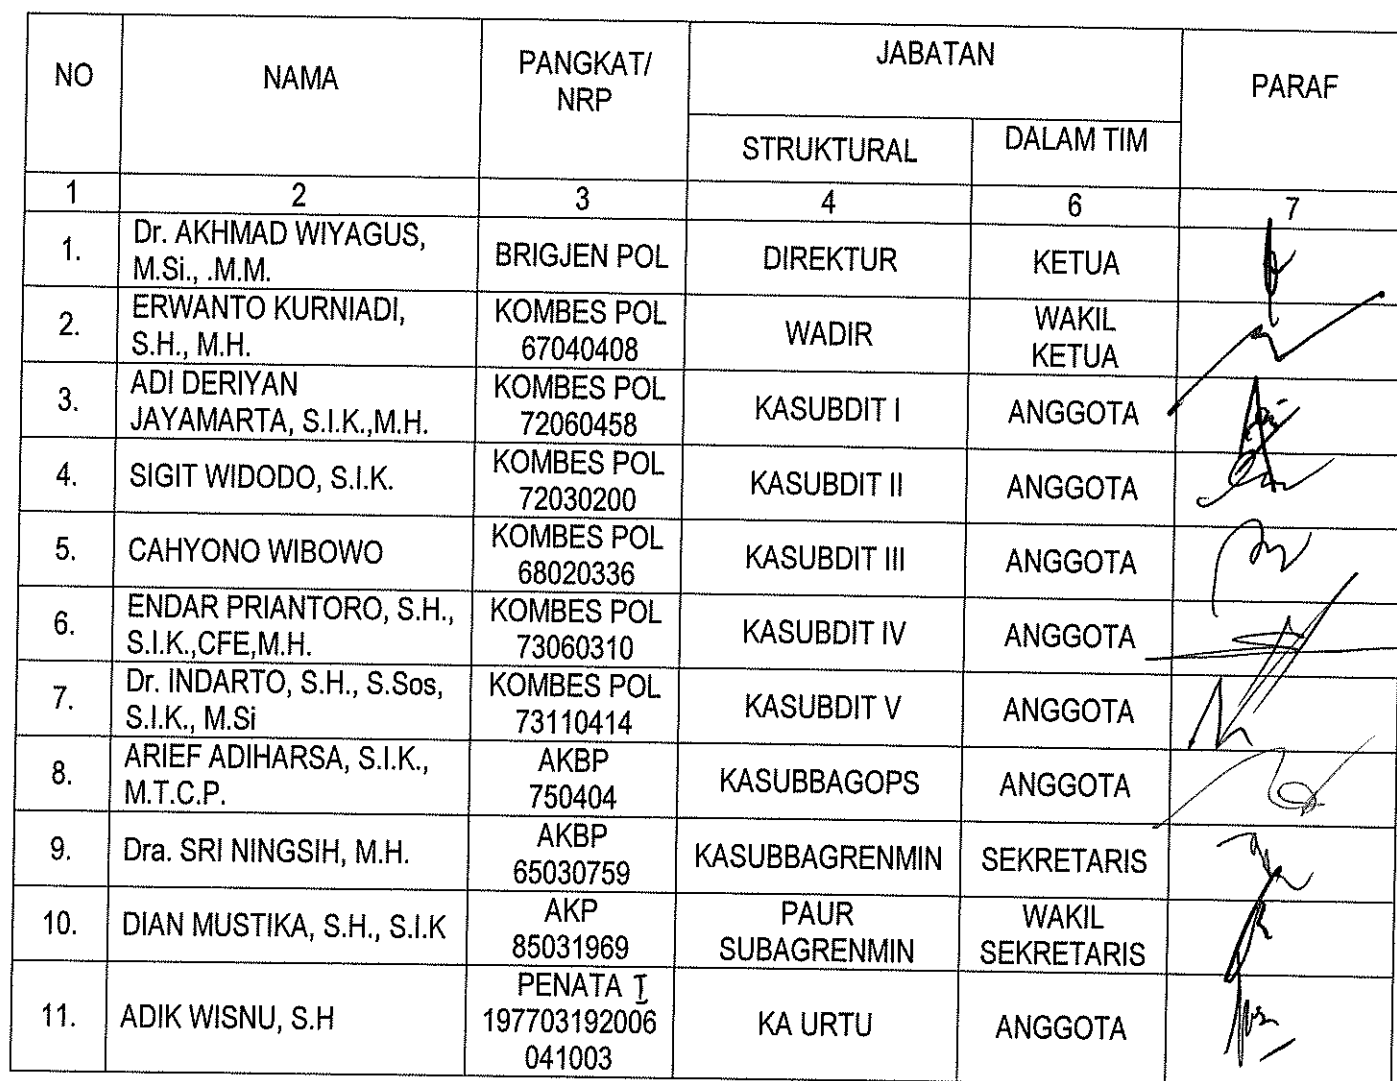 NO
NAMA
PANGKAT/
NRP
JABATAN
PARAF
STRUKTURAL
DALAM TIM
1
2
3
4
6
7
1.
Dr. AKHMAD WIYAGUS,
M.Si., .M.M.
BRIGJEN POL
DIREKTUR
KETUA
2.
ERWANTO KURNIADI,
S.H., M.H.
KOMBES POL
67040408
WADIR
WAKIL
KETUA
3.
ADI DERIYAN
JAYAMARTA, S.I.K.,M.H.
KOMBES POL
72060458
KASUBDIT I
ANGGOTA
4.
SIGIT WIDODO, S.I.K.
KOMBES POL
72030200
KASUBDIT II
ANGGOTA
5.
CAHYONO WIBOWO
KOMBES POL
68020336
KASUBDIT III
ANGGOTA
6.
ENDAR PRIANTORO, S.H.,
S.I.K.,CFE,M.H.
KOMBES POL
73060310
KASUBDIT IV
ANGGOTA
7.
Dr. INDARTO, S.H., S.Sos,
S.I.K., M.Si
KOMBES POL
73110414
KASUBDIT V
ANGGOTA
8.
ARIEF ADIHARSA, S.I.K.,
M.T.C.P.
AKBP
750404
KASUBBAGOPS
ANGGOTA
9.
Dra. SRI NINGSIH, M.H.
AKBP
65030759
KASUBBAGRENMIN
SEKRETARIS
10.
DIAN MUSTIKA, S.H., S.I.K
AKP
85031969
PAUR
SUBAGRENMIN
WAKIL
SEKRETARIS
11.
ADIK WISNU, S.H
PENATA I
197703192006
041003
KA URTU
ANGGOTA